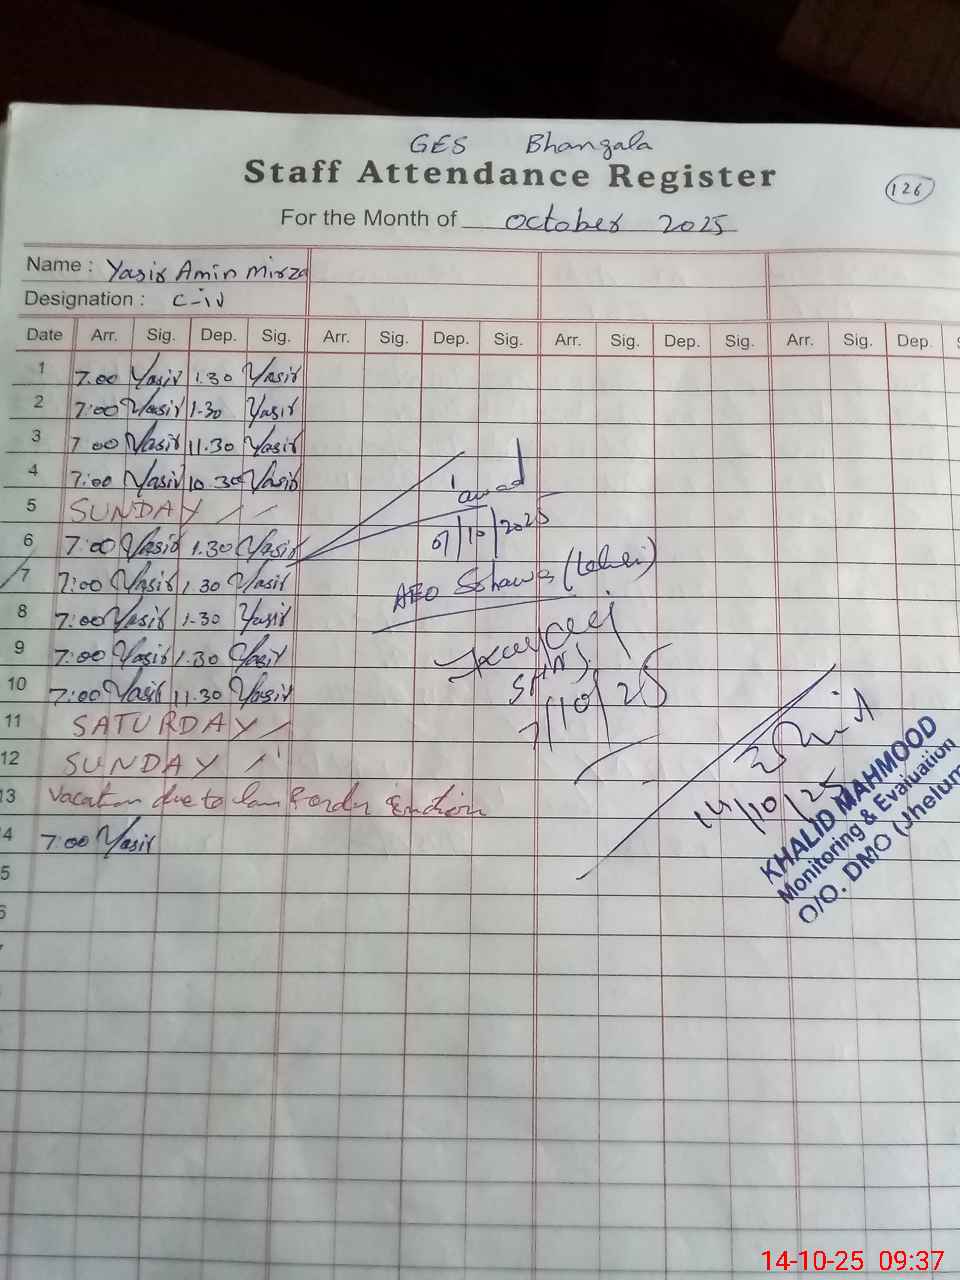 GES Bhangala
Staff Attendance Register
126
For the Month of October 2025
Name : Yasir Amin Mirza
Designation : C-iv
Date Arr. Sig. Dep. Sig. Arr. Sig. Dep. Sig. Arr. Sig. Dep. Sig. Arr. Sig. Dep. S
1 7:00 Yasir 1.30 Yasir
2 7:00 Yasir 1-30 Yasir
3 7 00 Yasir 11.30 Yasir
4 7:00 Yasir 10.30 Yasir
5 SUNDAY
6 7:00 Yasir 1.30 Yasir
7 7:00 Yasir 1 30 Yasir
8 7:00 Yasir 1-30 Yasir
9 7:00 Yasir 1.30 Yasir
10 7:00 Yasir 11.30 Yasir
11 SATURDAY
12 SUNDAY
13 Vacation due to law & order
4 7:00 Yasir
5
6
/10/2025
AEO
7/10/25
14/10/25
KHALID MAHMOOD
Monitoring & Evaluation
O/O. DMO (Jhelum
14-10-25 09:37